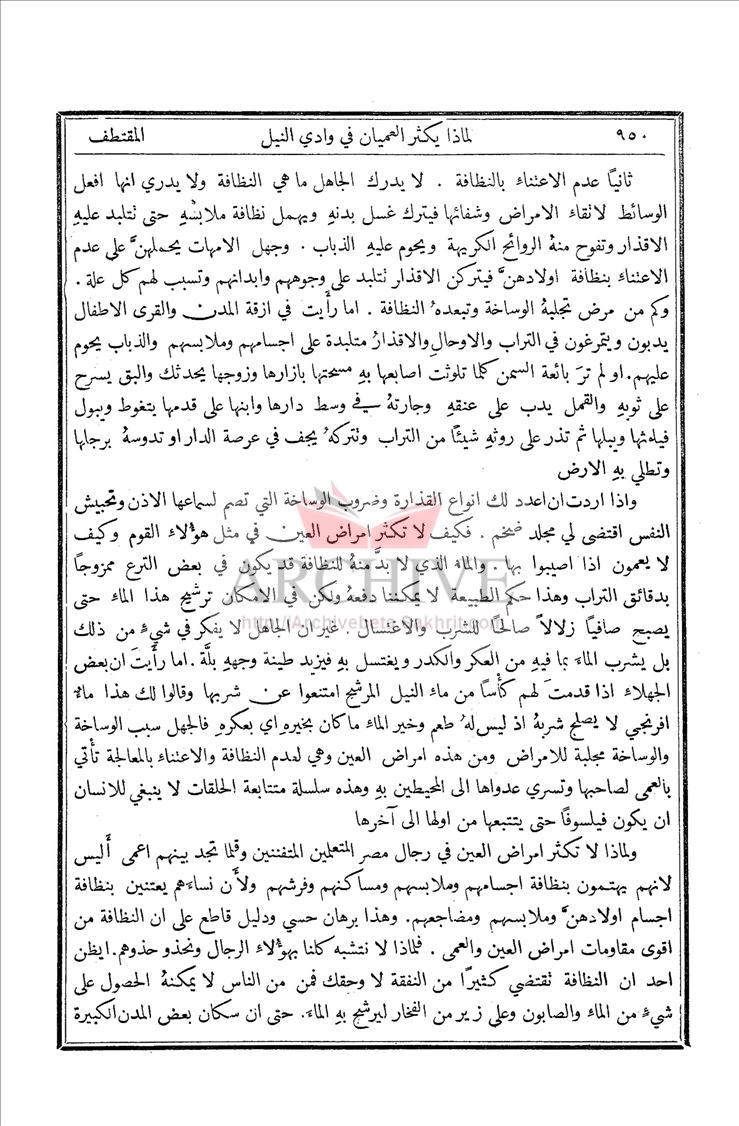 ٩٥٠ لماذا يكثر العميان في وادي النيل المقتطف
ثانياً عدم الاعتناء بالنظافة . لا يدرك الجاهل ما هي النظافة ولا يدري انها افعل
الوسائط لاتقاء الامراض وشفائها فيترك غسل بدنهِ ويهمل نظافة ملابسهِ حتى تتلبد عليهِ
الاقذار وتفوح منهُ الروائح الكريهة ويحوم عليهِ الذباب . وجهل الامهات يحملهنَّ على عدم
الاعتناء بنظافة اولادهنَّ فيتركن الاقذار تتلبد على وجوههم وابدانهم وتسبب لهم كل علة .
وكم من مرض تجلبهُ الوساخة وتبعدهُ النظافة . اما رأَيت في ازقة المدن والقرى الاطفال
يدبون ويتمرغون في التراب والاوحال والاقذارُ متلبدة على اجسامهم وملابسهم والذباب يحوم
عليهم. او لم ترَ بائعة السمن كلما تلوثت اصابعها بهِ مسحتها بازارها وزوجها يحدثك والبق يسرح
على ثوبهِ والقمل يدب على عنقهِ وجارتهُ في وسط دارها وابنها على قدمها يتغوط ويبول
فيلمثها ويبلها ثم تذر على روثهِ شيئًا من التراب وتتركهُ يجف في عرصة الدار او تدوسهُ برجلها
وتطلي بهِ الارض
واذا اردت ان اعدد لك انواع القذارة وضروب الوساخة التي تصم لسماعها الاذن وتجيش
النفس اقتضى لي مجلد ضخم . فكيف لا تكثر امراض العين في مثل هؤلاء القوم وكيف
لا يعمون اذا اصيبوا بها . والماء الذي لا بدَّ منهُ للنظافة قد يكون في بعض الترع ممزوجًا
بدقائق التراب وهذا حكم الطبيعة لا يمكننا دفعهُ ولكن في الامكان ترشيح هذا الماء حتى
يصبح صافيًا زلالاً صالحًا للشرب والاغتسال . غير ان الجاهل لا يفكر في شيءٍ من ذلك
بل يشرب الماءَ بما فيهِ من العكر والكدر ويغتسل بهِ فيزيد طينة وجههِ بلَّة . اما رأَيتَ ان بعض
الجهلاء اذا قدمت لهم كأسًا من ماء النيل المرشح امتنعوا عن شربها وقالوا لك هذا ماءٌ
افرنجي لا يصلح شربهُ اذ ليس لهُ طعم وخير الماء ما كان بخيرهِ اي بعكرهِ فالجهل سبب الوساخة
والوساخة مجلبة للامراض ومن هذه امراض العين وهي لعدم النظافة والاعتناء بالمعالجة تأتي
بالعمى لصاحبها وتسري عدواها الى المحيطين بهِ وهذه سلسلة متتابعة الحلقات لا ينبغي للانسان
ان يكون فيلسوفًا حتى يتتبعها من اولها الى آخرها
ولماذا لا تكثر امراض العين في رجال مصر المتعلمين المتفننين وقلما تجد بينهم اعمى أَليس
لانهم يهتمون بنظافة اجسامهم وملابسهم ومساكنهم وفرشهم ولأَن نساءَهم يعتنين بنظافة
اجسام اولادهنَّ وملابسهم ومضاجعهم. وهذا برهان حسي ودليل قاطع على ان النظافة من
اقوى مقاومات امراض العين والعمى . فلماذا لا نتشبه كلنا بهؤلاء الرجال ونحذو حذوهم. ايظن
احد ان النظافة تقتضي كثيرًا من النفقة لا وحقك فمن من الناس لا يمكنهُ الحصول على
شيءٍ من الماء والصابون وعلى زير من الفخار ليرشح بهِ الماءَ. حتى ان سكان بعض المدن الكبيرة
ARCHIVE
http://Archivebeta.Sakhrit.com